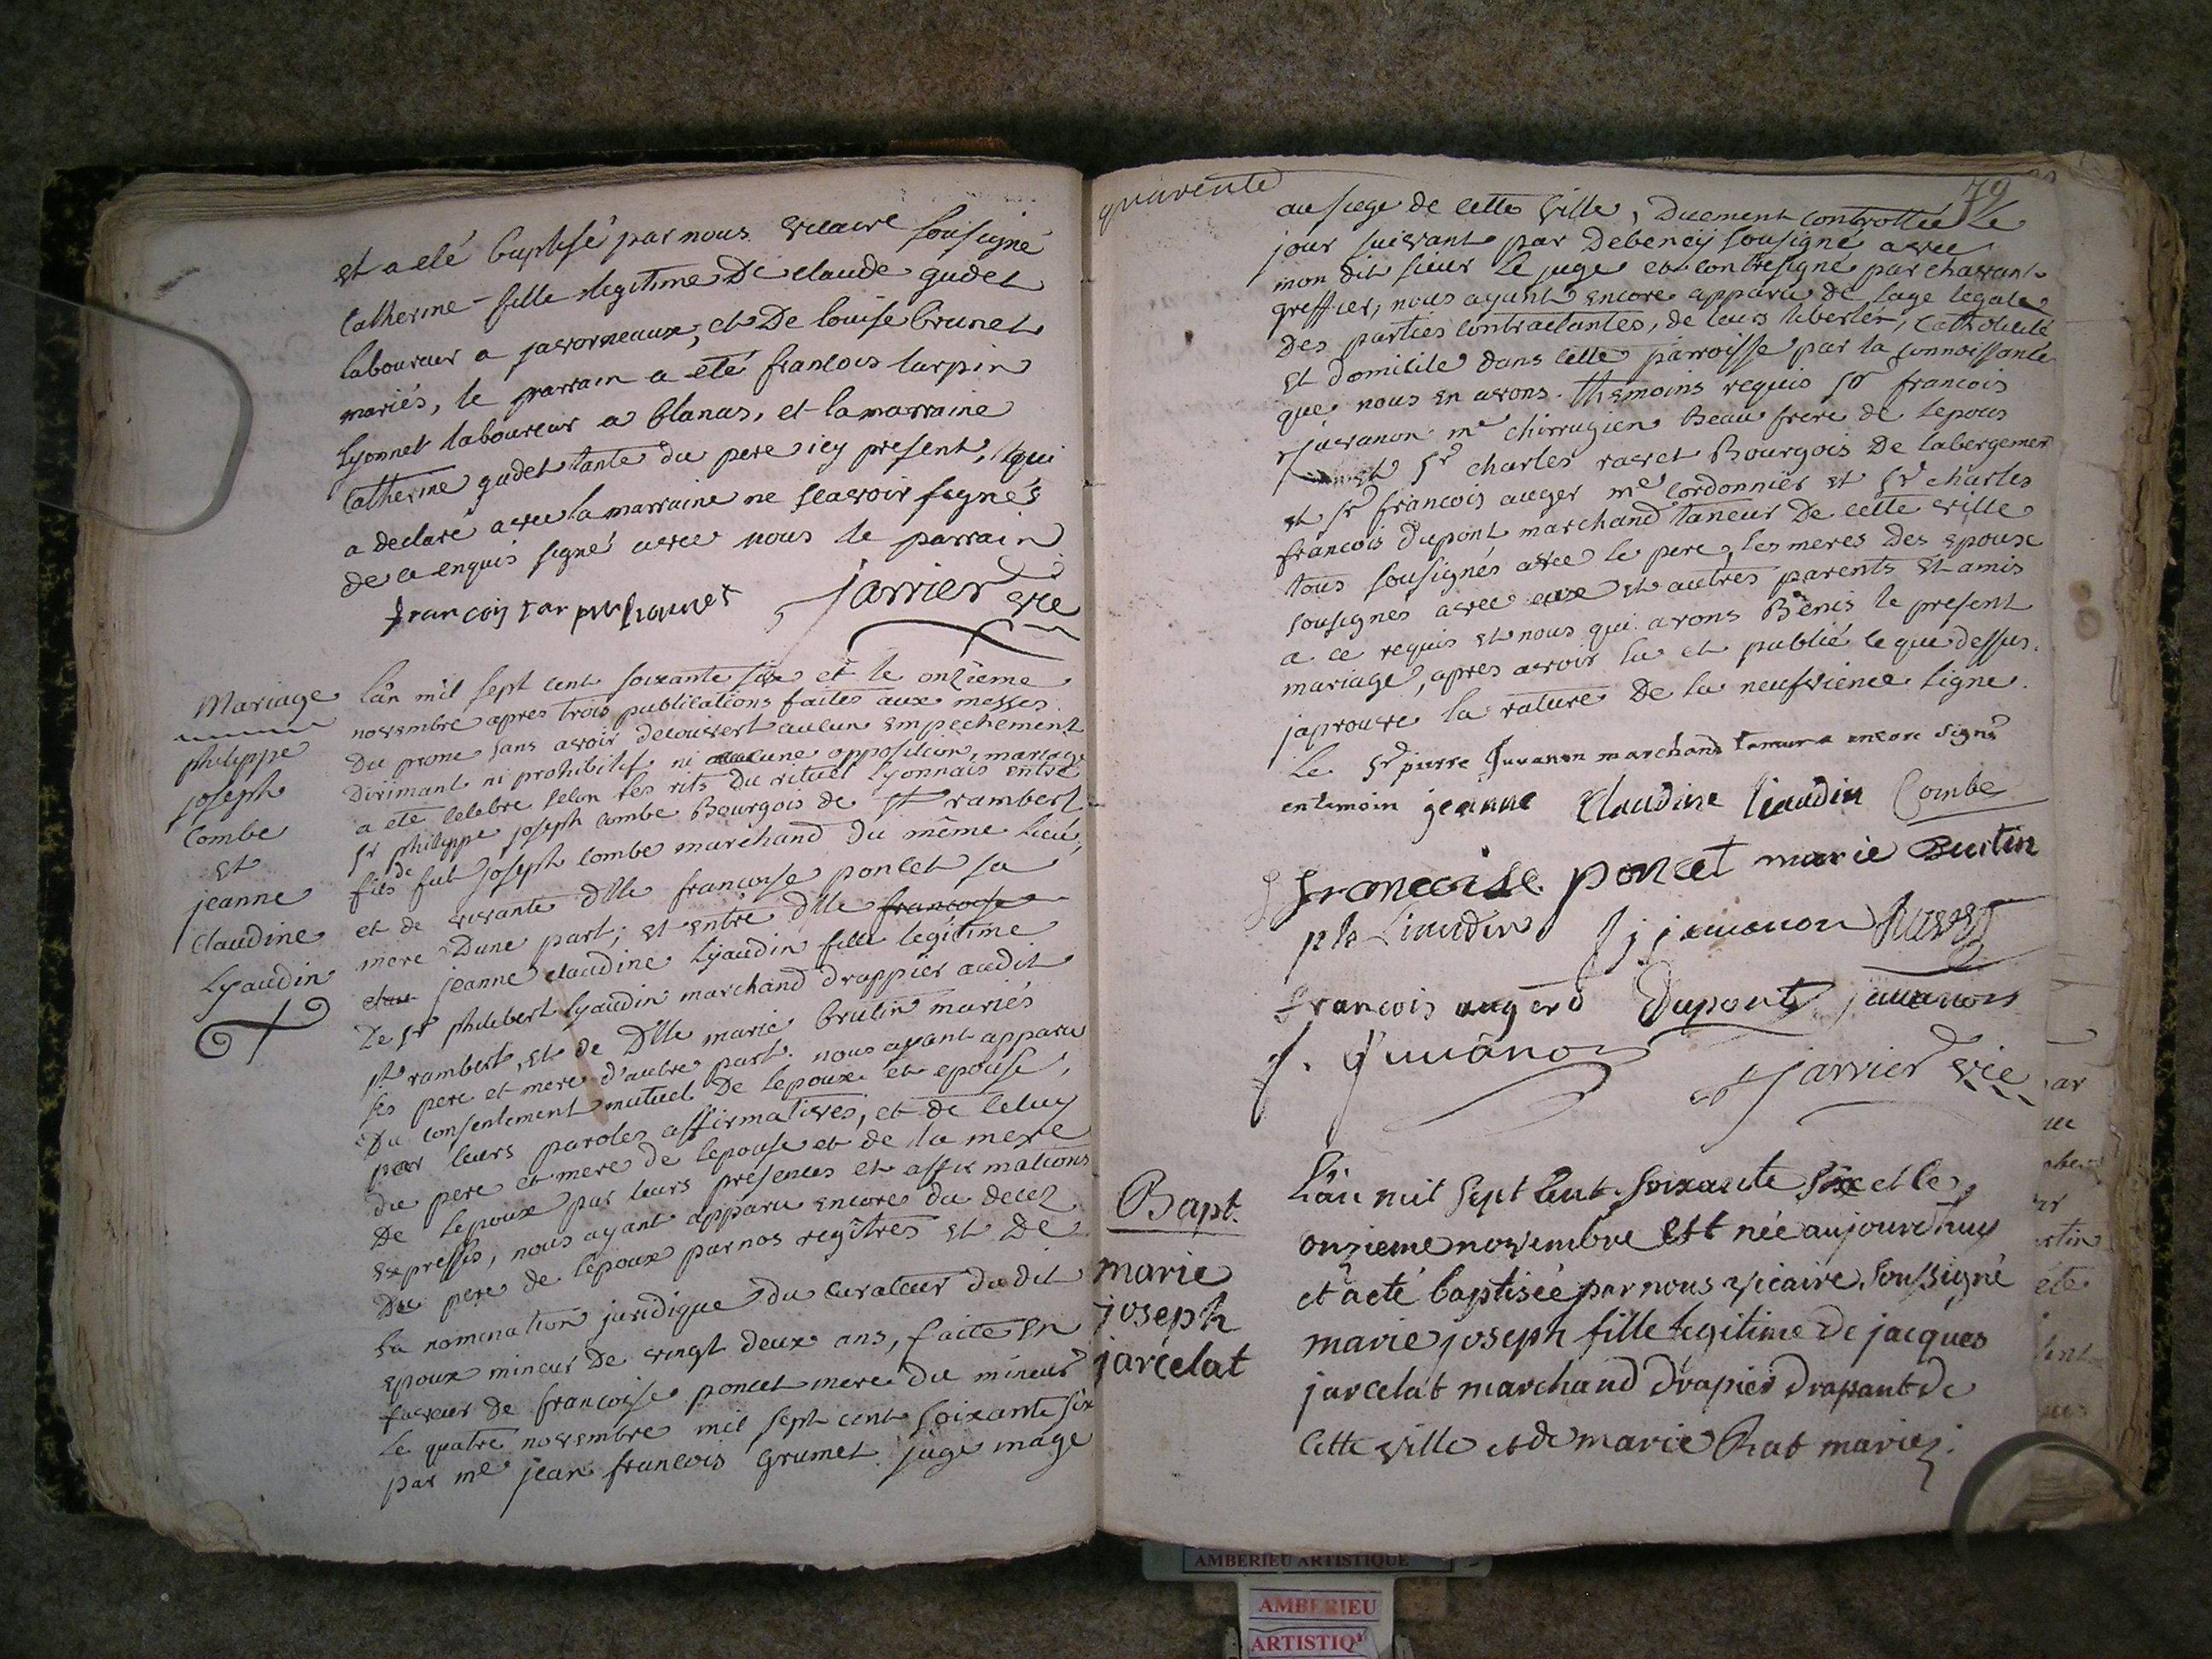 et a eté baptisé par nous vicaire sousigné
Catherine fille legitime De claude gudet
laboureur a javorneaux, et De louise brunet
mariés, le parrain a eté francois turpin
Lyonnet laboureur a blanas, et la marraine
Catherine gudet tante du pere icy present, qui
a declaré avec la marraine ne scavoir signés
de ce enquis signé avec nous le parrain
Jarrier vic
Mariage
philippe
joseph
Combe
et
jeanne
Claudine
Lyaudin
lân mil sept cent soixante six et le onzieme
novembre apres trois publications faites aux messes
Du prone sans avoir decouvert aucun empechement
Dirimant ni prohibitif ni aucune opposition, mariage
a eté celebre selon les rits du rituel Lyonnais entre
sr philippe joseph combe Bourgois de st rambert
fils de fut joseph combe marchand du même lieu,
et de vivante dlle francoise poncet sa
mere Dune part; et entre dlle francoise
jeanne claudine Lyaudin fille legitime
De sr philibert Lyaudin marchand drappier audit
st rambert, et de Dlle marie brutin mariés
ses pere et mere d'autre part. nous ayant apparu
Du consentement mutuel De lepoux et epouse,
par leurs paroles affirmatives, et de celuy
du pere et mere de lepouse et de la mere
De lepoux par leurs presences et affirmations
expresses, nous ayant apparu encore du decez
Du pere de lepoux par nos regîtres et De
la nomination juridique du curateur du dit
epoux mineur De vingt deux ans, faite en
faveur de francoise poncet mere du mineur
le quatre novembre mil sept cent soixante six
par me jean francois Grumet juge mage
quarente
79
au siege de cette ville, Duement controllée le
jour suivant par Debeney sousigné avec
mon dit sieur le juge et contresigné par chavant
greffier, nous ayant encore apparu de lage legale
Des parties contractantes, de leurs libertés, catholicité
et domicile dans cette parroisse par la connoissance
que nous en avons. themoins requis sr francois
juvanon me chirrugien beau frere de lepoux
et sr charles ravet Bourgois De labergement
et sr francois auger me cordonnier et sr charles
francois dupont marchand taneur De cette ville
tous sousignés avec le pere, les meres Des epoux
sousignes avec eux et autres parents et amis
a ce requis et nous qui avons Benis le present
mariage, apres avoir lu et publié ce que dessus.
japrouve la rature De la neufvieme ligne.
Le sr pierre Juvanon marchand tanneur a encore signé
en temoin jeanne Claudine liaudin Combe
francoise poncet marie Brutin
ph Liaudin j juvanon Ravet
francois augerd Dupont juvanon
J. Juvânon
Jarrier vic
Bapt.
marie
joseph
jarcelat
L'an mil sept cent soixante six et le
onzieme novembre est née aujourdhuy
et a eté baptisée par nous vicaire soussigné
marie joseph fille legitime de jacques
jarcelat marchand drapier drapant de
cette ville et de marie Rat mariez.
AMBERIEU ARTISTIQUE
AMBERIEU
ARTISTIQ